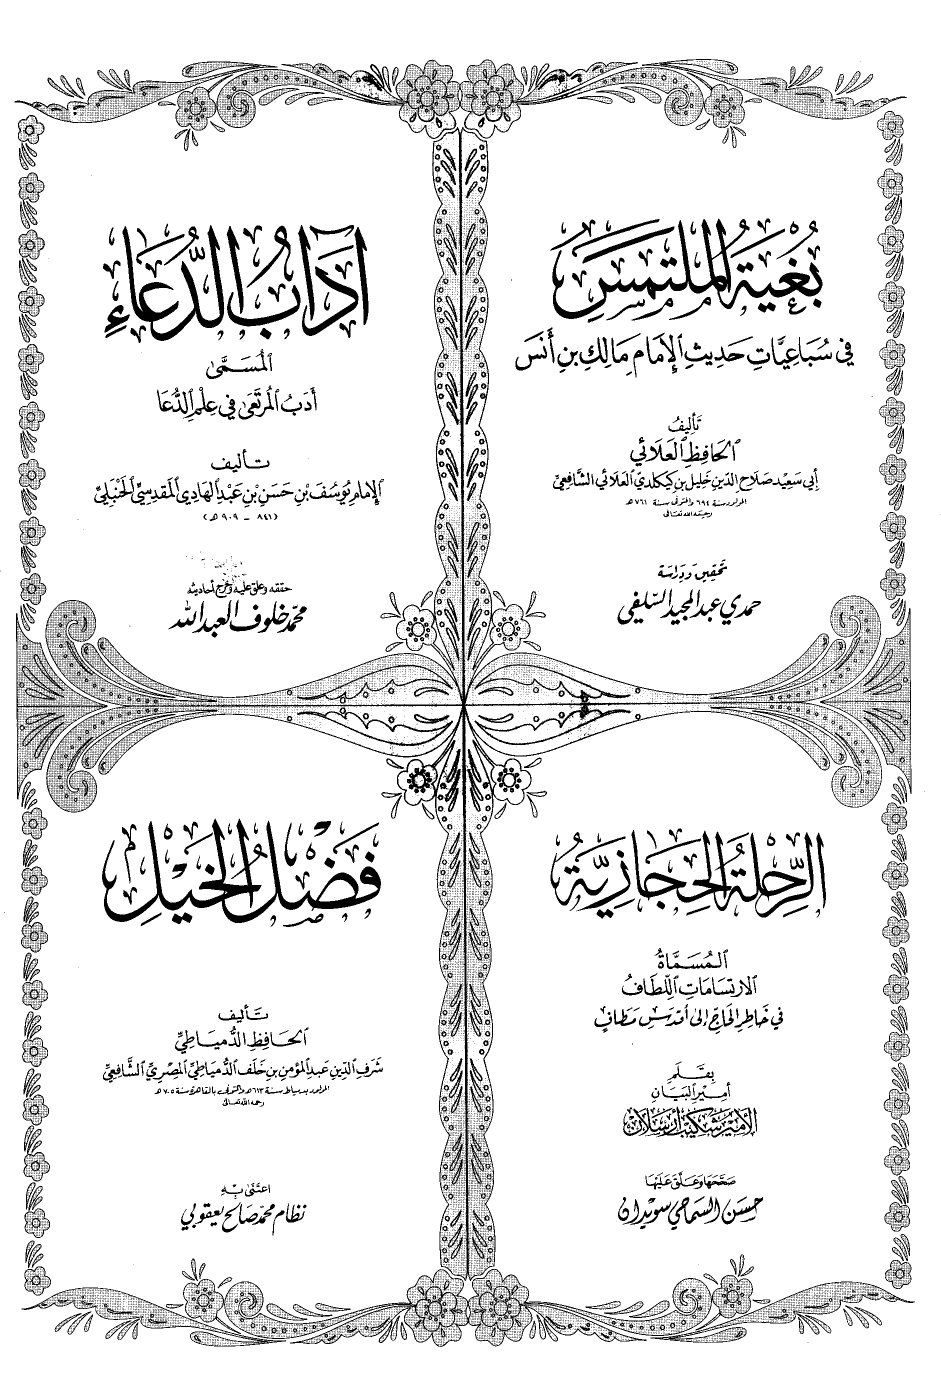 بُغْيَةُ الْمُلْتَمِسِ
في سُبَاعِيَّاتِ حَدِيثِ الْإِمَامِ مَالِكِ بنِ أَنَسَ
تَأْلِيفُ
الْحَافِظِ الْعَلَائِي
أبي سَعِيْد صَلَاح الدِّين خَلِيل بن كَيْكَلدي الْعَلَائي الشَّافِعِيّ
المولود سنة ٦٩٤ والمتوفى سنة ٧٦١ هـ
رحمه الله تعالى
تحقيق ودراسة
حمدي عبد المجيد السّلفي
آدَابُ الدُّعَاءِ
الْمُسَمَّى
أَدَبُ الْمُرْتَعَى فِي عِلْمِ الدُّعَا
تأليف
الْإِمَامِ يُوسُفَ بْنِ حَسَنِ بْنِ عَبْدِ الْهَادِي الْمَقْدِسِيِّ الْحَنْبَلِيِّ
(٨٤١ - ٩٠٩ هـ)
حققه وعلق عليه وخرج أحاديثه
محمّد خلوف العبد الله
الرِّحْلَةُ الْحِجَازِيَّةُ
الْمُسَمَّاةُ
الارتسَامَاتِ اللِّطَافُ
في خَاطِرِ الحَاجِّ إلى أقدَسِ مَطَافٍ
بِقَلَمِ
أمير البَيَان
الأمير شكيب أرسلان
صَحَّحَهَا وَعَلَّقَ عَلَيْهَا
حسن السماحي سويدان
فَضْلُ الْخَيْلِ
تَأليف
الْحَافِظِ الدُّمْيَاطِيِّ
شَرَفِ الدِّين عَبد المؤمِن بن خَلَف الدُّمْيَاطِيِّ المِصْرِيِّ الشَّافِعِيّ
المولود بدمياط سنة ٦١٣ هـ والمتوفى بالقاهرة سنة ٧٠٥ هـ
رحمه الله تعالى
اعتَنَى بِهِ
نظام محمّد صالح يعقوبي